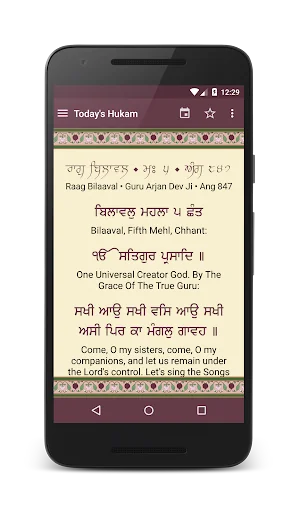 12:29
Today's Hukam
ਰਾਗੁ ਬਿਲਾਵਲ • ਮਃ ੫ • ਅੰਗ ੮੪੭
Raag Bilaaval • Guru Arjan Dev Ji • Ang 847
ਬਿਲਾਵਲੁ ਮਹਲਾ ੫ ਛੰਤ
Bilaaval, Fifth Mehl, Chhant:
ੴ ਸਤਿਗੁਰ ਪ੍ਰਸਾਦਿ ॥
One Universal Creator God. By The
Grace Of The True Guru:
ਸਖੀ ਆਉ ਸਖੀ ਵਸਿ ਆਉ ਸਖੀ
ਅਸੀ ਪਿਰ ਕਾ ਮੰਗਲੁ ਗਾਵਹ ॥
Come, O my sisters, come, O my
companions, and let us remain under
the Lord's control. Let's sing the Songs